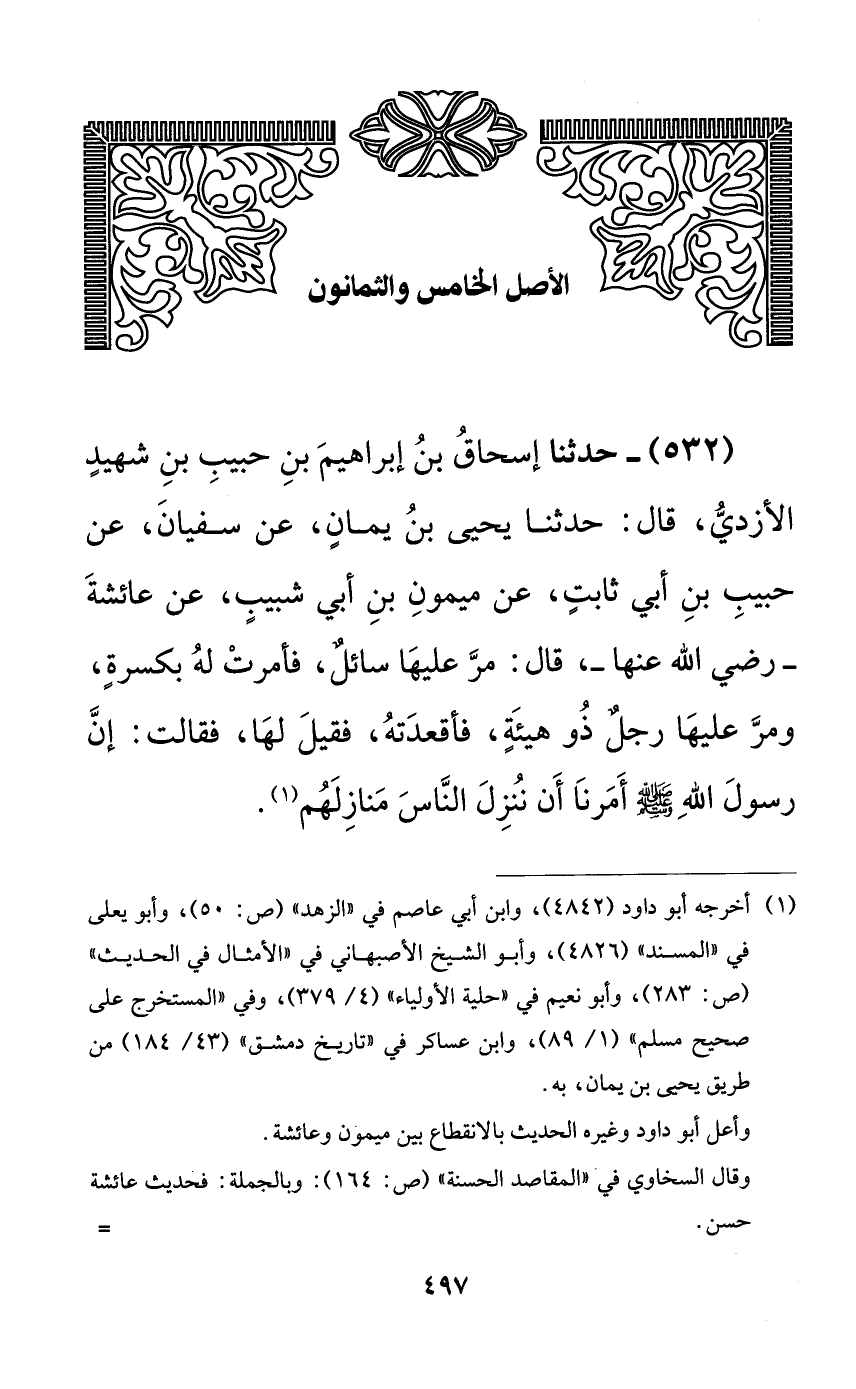 الأصل الخامس والثمانون
(٥٣٢) ـ حدثنا إسحاقُ بنُ إبراهيمَ بنِ حبيبِ بنِ شهيدٍ
الأزديُّ، قال: حدثنا يحيى بنُ يمانٍ، عن سفيانَ، عن
حبيبِ بنِ أبي ثابتٍ، عن ميمونِ بنِ أبي شبيبٍ، عن عائشةَ
ـ رضي الله عنها ـ، قال: مرَّ عليهَا سائلٌ، فأمرتْ لهُ بكسرةٍ،
ومرَّ عليهَا رجلٌ ذُو هيئَةٍ، فأقعدَتهُ، فقيلَ لهَا، فقالت: إنَّ
رسولَ اللهِ ﷺ أَمَرنَا أَن نُنزِلَ النَّاسَ مَنازِلَهُم(١).
(١) أخرجه أبو داود (٤٨٤٢)، وابن أبي عاصم في «الزهد» (ص: ٥٠)، وأبو يعلى
في «المسند» (٤٨٢٦)، وأبو الشيخ الأصبهاني في «الأمثال في الحديث»
(ص: ٢٨٣)، وأبو نعيم في «حلية الأولياء» (٤/ ٣٧٩)، وفي «المستخرج على
صحيح مسلم» (١/ ٨٩)، وابن عساكر في «تاريخ دمشق» (٤٣/ ١٨٤) من
طريق يحيى بن يمان، به.
وأعل أبو داود وغيره الحديث بالانقطاع بين ميمون وعائشة.
وقال السخاوي في «المقاصد الحسنة» (ص: ١٦٤): وبالجملة: فحديث عائشة
حسن. =
٤٩٧